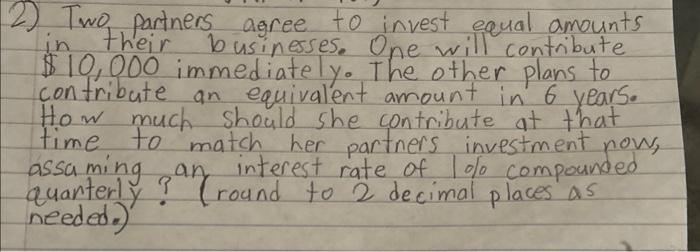 2) Two partners agree to invest equal amounts
in their businesses. One will contribute
$10,000 immediately. The other plans to
contribute an equivalent amount in 6 years.
How much should she contribute at that
time to match her partners investment now,
assuming an interest rate of 1% compounded
quarterly? (round to 2 decimal places as
needed.)